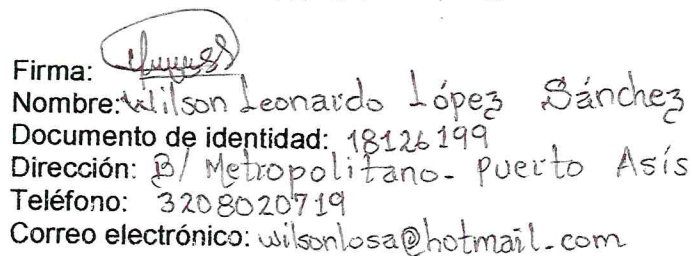 Firma:
Nombre: Wilson Leonardo López Sánchez
Documento de identidad: 18126199
Dirección: B/ Metropolitano- Puerto Asís
Teléfono: 3208020719
Correo electrónico: wilsonlosa@hotmail.com